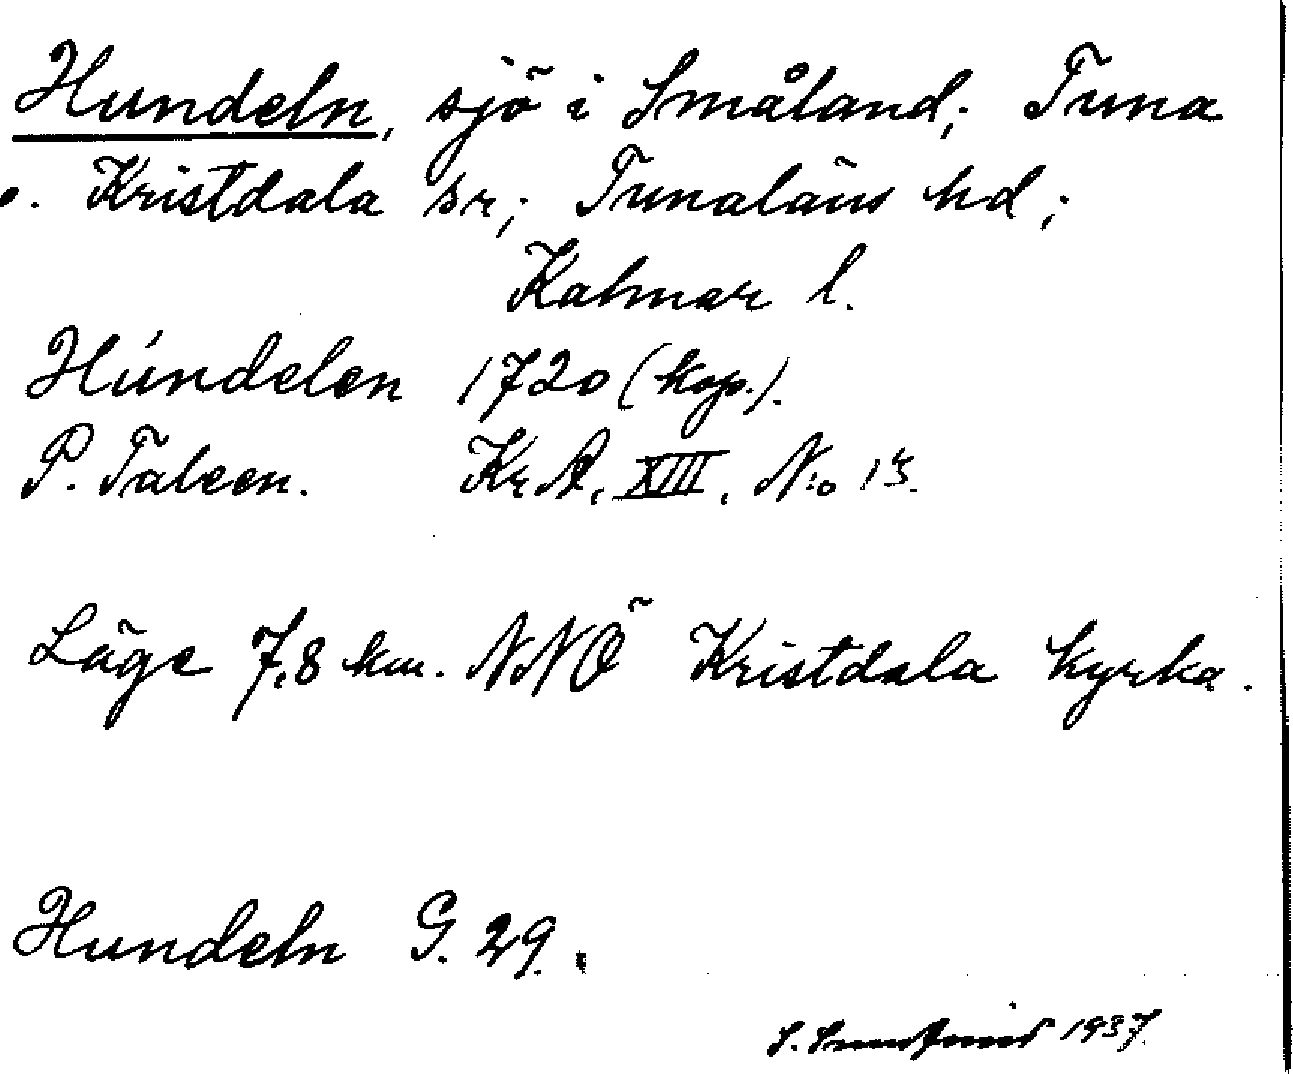 Hundeln, sjö i Småland; Tuna
o. Kristdala sr; Tunaläns hd;
Kalmar l.
Húndelen 1720 (kop.).
P. Taleen. Kr.A. XIII. N:o 15.
Läge 7,8 km. NNÖ Kristdala kyrka.
Hundeln G. 29.
S. 1937.